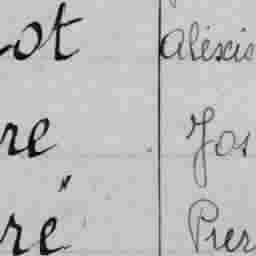 ot Aléxis
re Jos
"
ré Pier